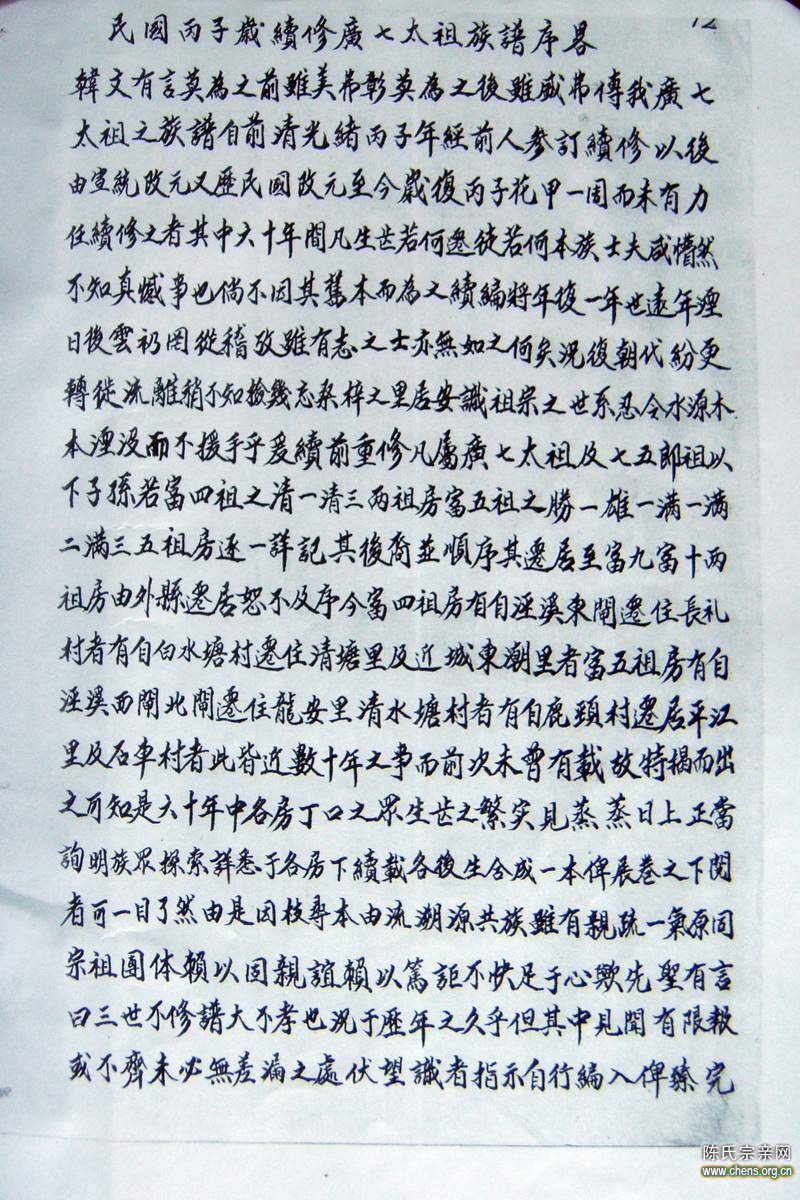 12
民國丙子歲續修廣七太祖族譜序畧
韓文有言莫為之前雖美弗彰莫為之後雖盛弗傳我廣七
太祖之族譜自前清光緒丙子年經前人參訂續修以後
由宣統改元又歷民國改元至今歲復丙子花甲一周而未有力
任續修之者其中六十年間凡生齿若何遷徙若何本族士夫咸懵然
不知真憾事也倘不因其舊本而為之續編將年復一年世遠年湮
日後雲礽罔從稽攷雖有志之士亦無如之何矣況復朝代紛更
轉徙流離稍不知檢幾忘桑梓之里居安識祖宗之世系忍令水源木
本湮没而不援手乎爰續前重修凡屬廣七太祖及七五郎祖以
下子孫若富四祖之清一清三两祖房富五祖之勝一雄一满一满
二满三五祖房逐一詳記其後裔並順序其遷居至富九富十两
祖房由外縣遷居恕不及序今富四祖房有自淫溪東閘遷住長礼
村者有自白水塘村遷住清塘里及近城東潮里者富五祖房有自
淫溪西閘北閘遷住龍安里清水塘村者有自鹿頸村遷居平江
里及石車村者此皆近數十年之事而前次未曾有載故特揭而出
之可知是六十年中各房丁口之眾生齿之繁实見蒸蒸日上正當
詢明族眾探索詳悉于各房下續載各後生合成一本俾展卷之下閱
者可一目了然由是因枝尋本由流溯源共族雖有親疏一氣原同
宗祖團体賴以固親誼賴以篤詎不快足于心歟先聖有言
曰三世不修譜大不孝也況于歷年之久乎但其中見聞有限報
或不齊未必無差漏之處伏望識者指示自行編入俾臻完
陈氏宗亲网
www.chens.org.cn